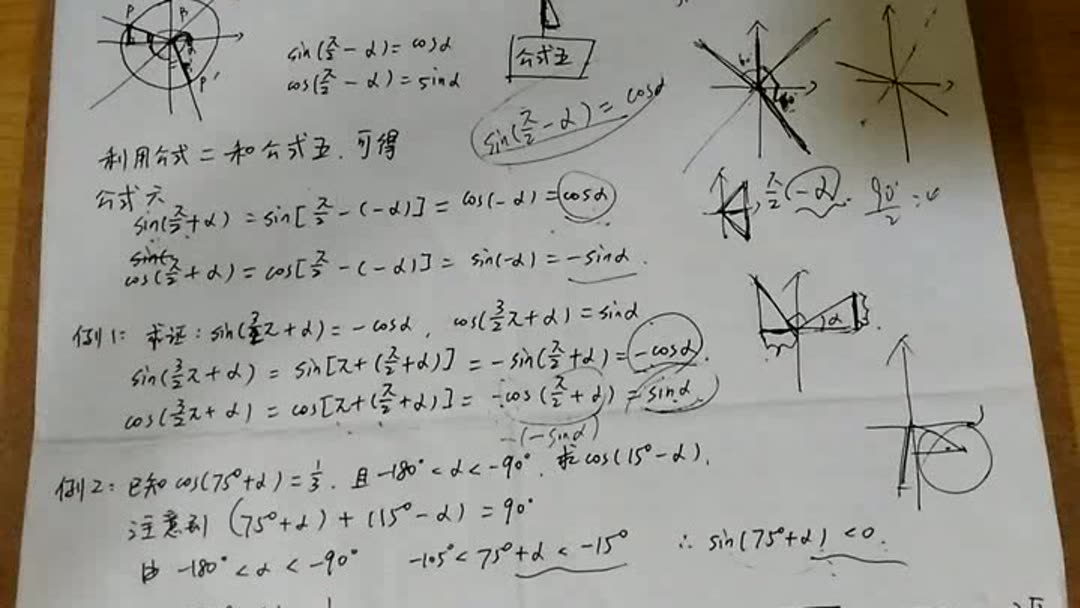 P
sin(π/2 - α) = cosα
cos(π/2 - α) = sinα
P'
公式五
sin(π/2 - α) = cosα
利用公式二和公式五,可得
公式六
sin(π/2 + α) = sin[π/2 - (-α)] = cos(-α) = cosα
cos(π/2 + α) = cos[π/2 - (-α)] = sin(-α) = -sinα.
π/2 (-α).
例1: 求证: sin(3/2π + α) = -cosα, cos(3/2π + α) = sinα
sin(3/2π + α) = sin[π + (π/2 + α)] = -sin(π/2 + α) = -cosα.
cos(3/2π + α) = cos[π + (π/2 + α)] = -cos(π/2 + α) = sinα.
-(-sinα)
α
例2: 已知cos(75° + α) = 1/3, 且 -180° < α < -90°, 求cos(15° - α).
注意到 (75° + α) + (15° - α) = 90°
由 -180° < α < -90° -105° < 75° + α < -15° ∴ sin(75° + α) < 0.